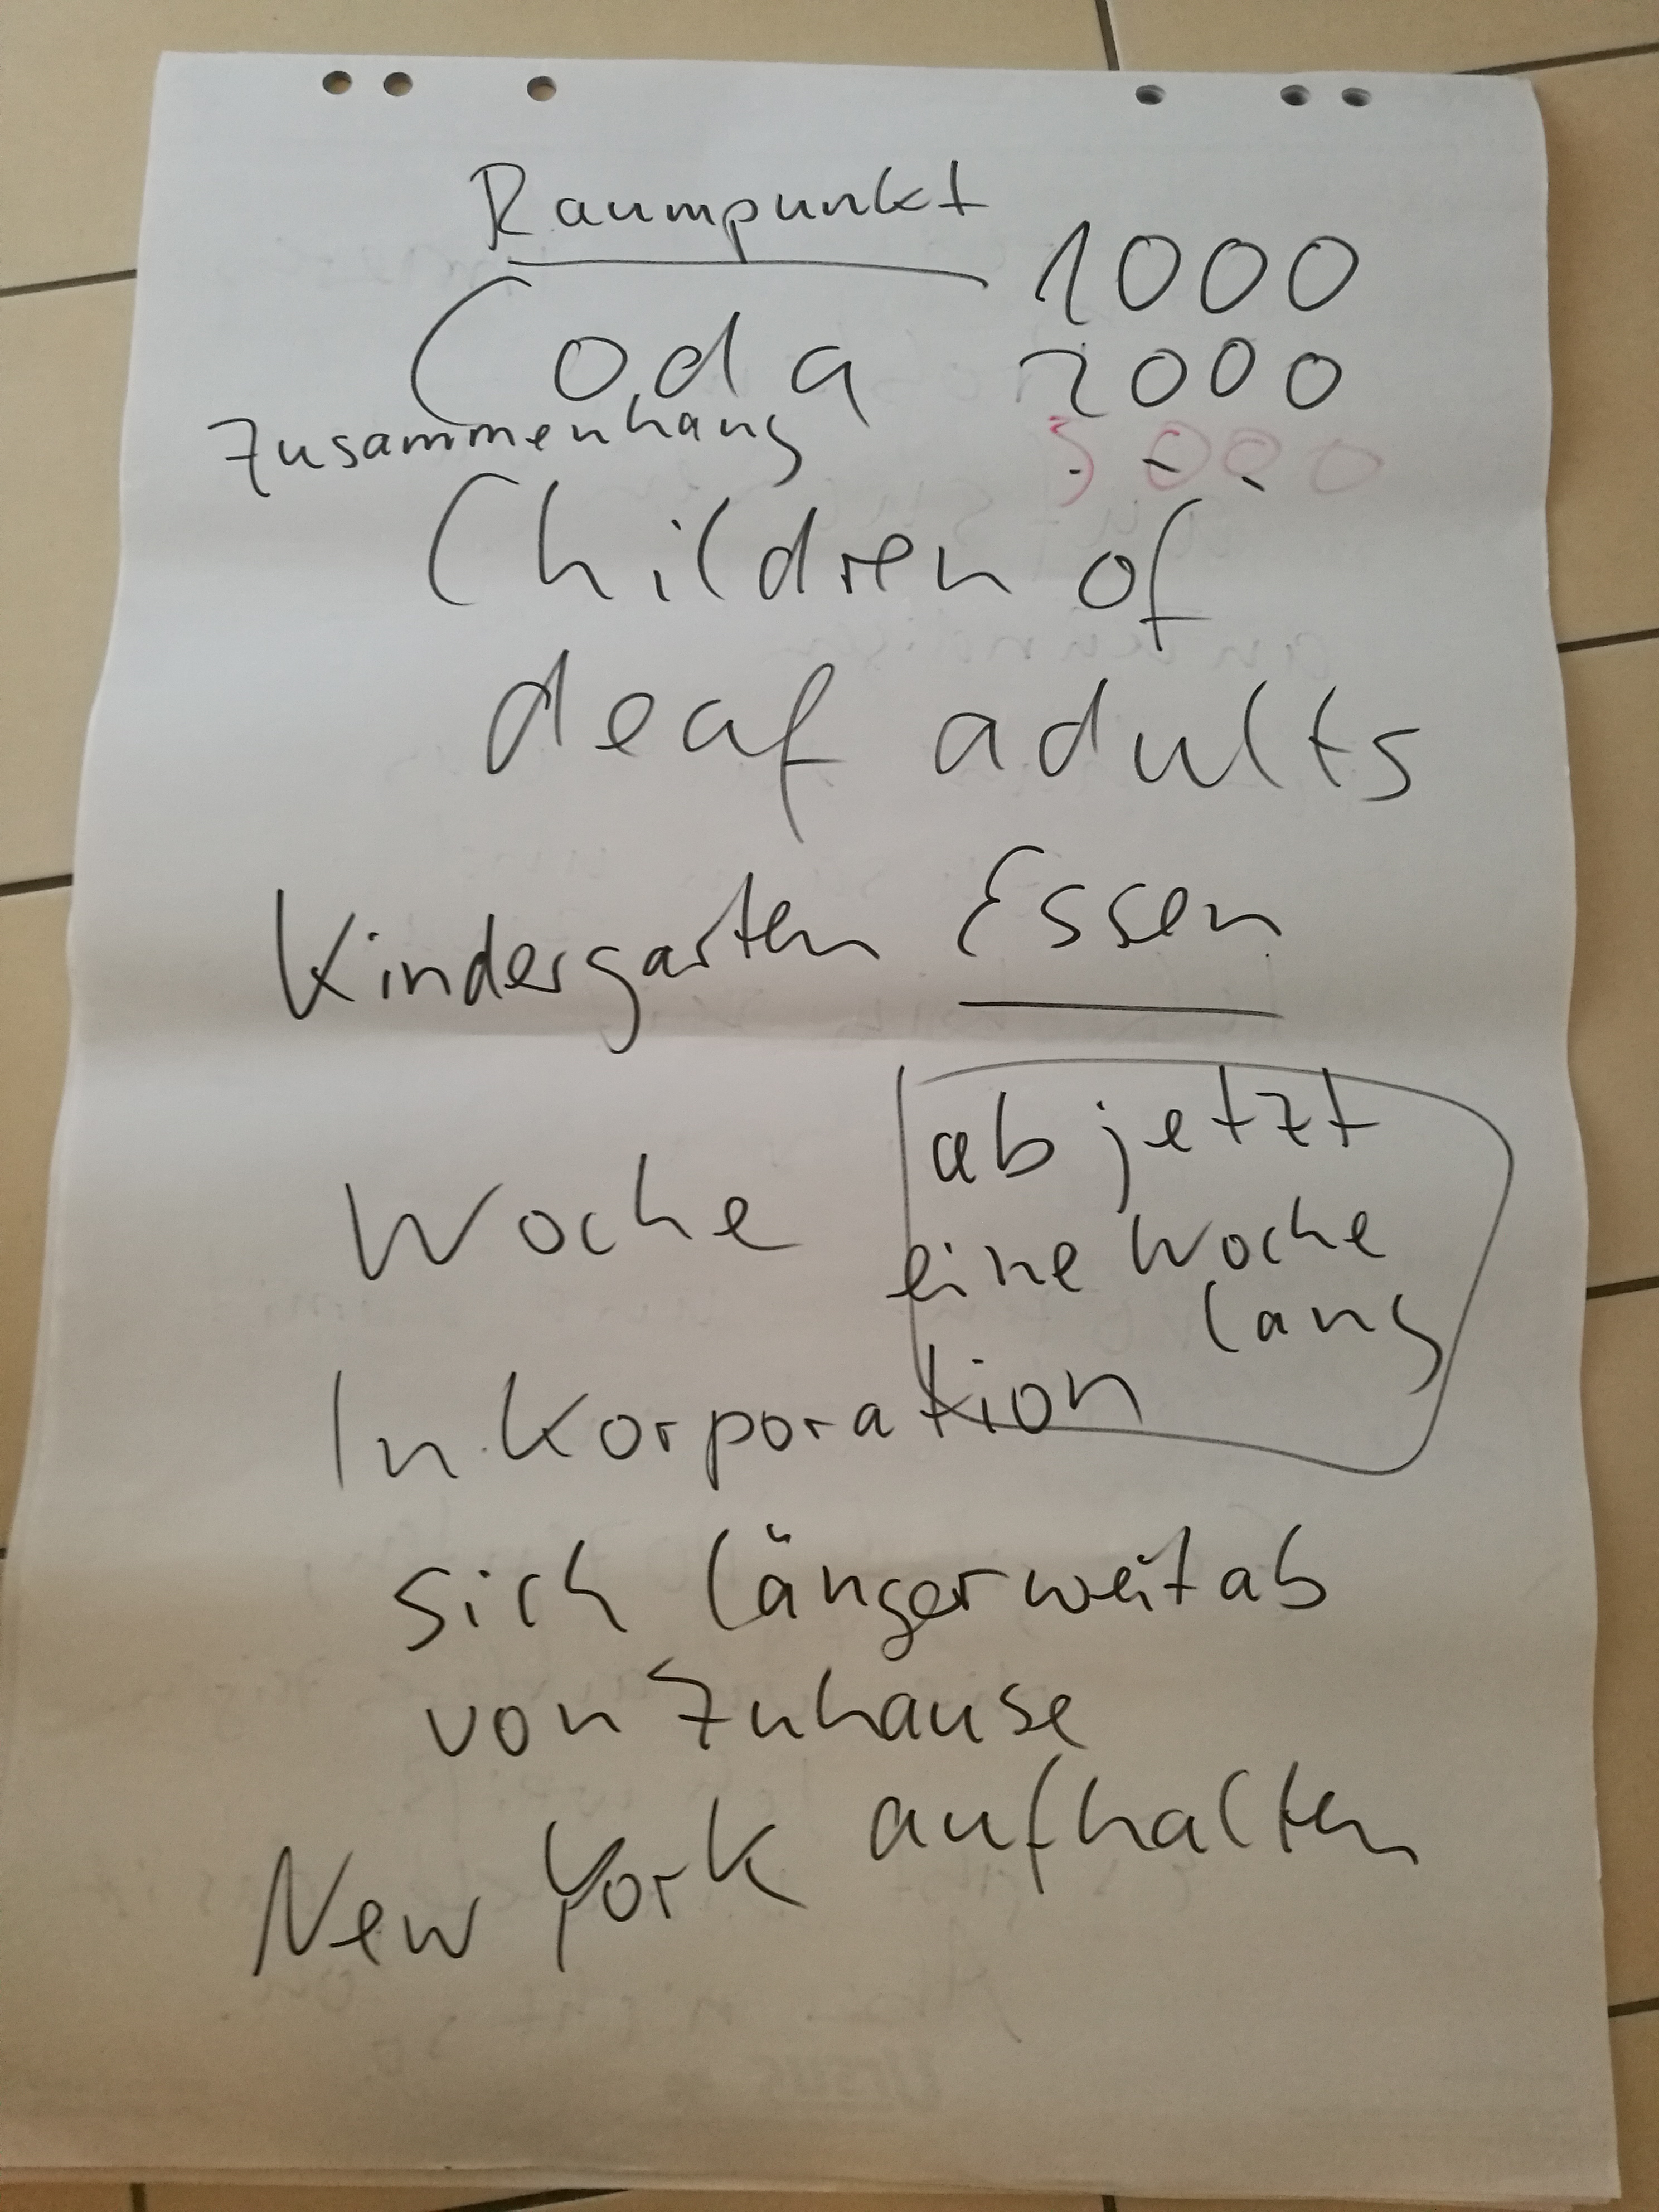 Raumpunkt
1000
Coda 2000
Zusammenhang
000
Children of
deaf adults
Kindergarten Essen
ab jetzt
Woche eine Woche
lang
Inkorporation
sich länger weitab
von Zuhause
aufhalten
New York